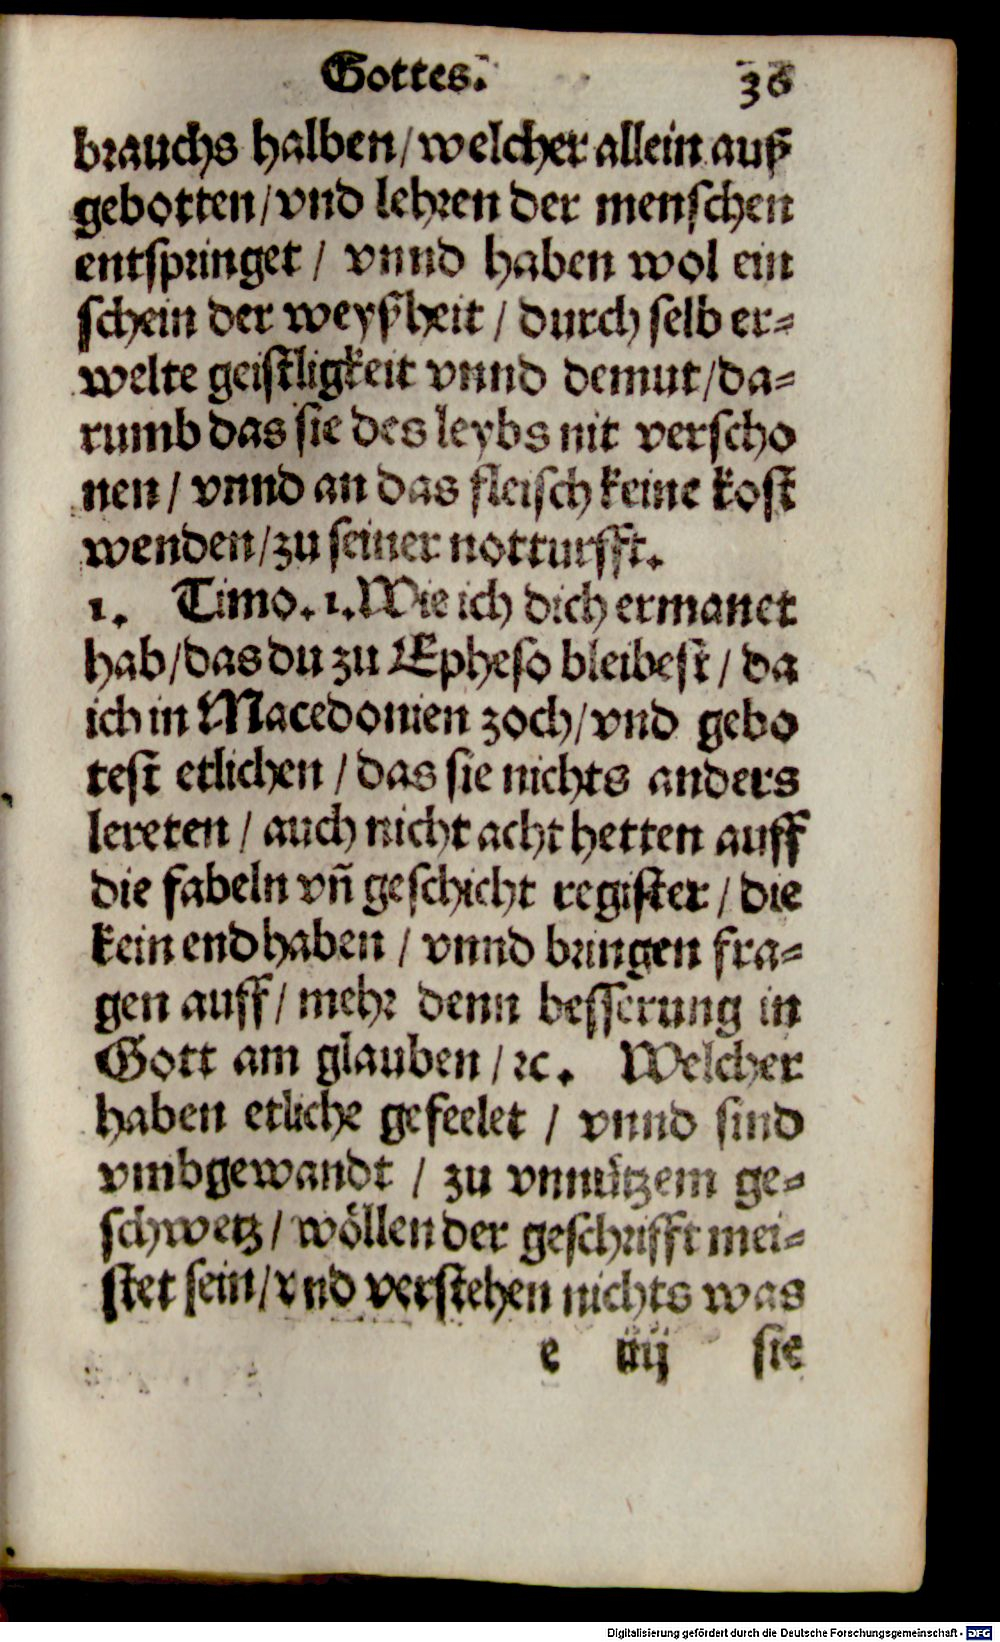 Gottes. 36
brauchs halben/ welcher allein auß
gebotten/ vnd lehren der menschen
entspringet / vnnd haben wol ein
schein der weyßheit / durch selb er-
welte geistligkeit vnnd demut/ da-
rumb das sie des leybs nit verscho
nen / vnnd an das fleisch keine kost
wenden/ zu seiner notturfft.
1. Timo. 1. Wie ich dich ermanet
hab/ das du zu Epheso bleibest / da
ich in Macedonien zoch/ vnd gebo
test etlichen / das sie nichts anders
lereten / auch nicht acht hetten auff
die fabeln vñ geschicht register / die
kein end haben / vnnd bringen fra-
gen auff / mehr denn besserung in
Gott am glauben / ꝛc. Welcher
haben etliche gefeelet / vnnd sind
vmbgewandt / zu vnnützem ge-
schwetz / wöllen der geschrifft mei-
stet sein/ vnd verstehen nichts was
e iiij sie
Digitalisierung gefördert durch die Deutsche Forschungsgemeinschaft - DFG